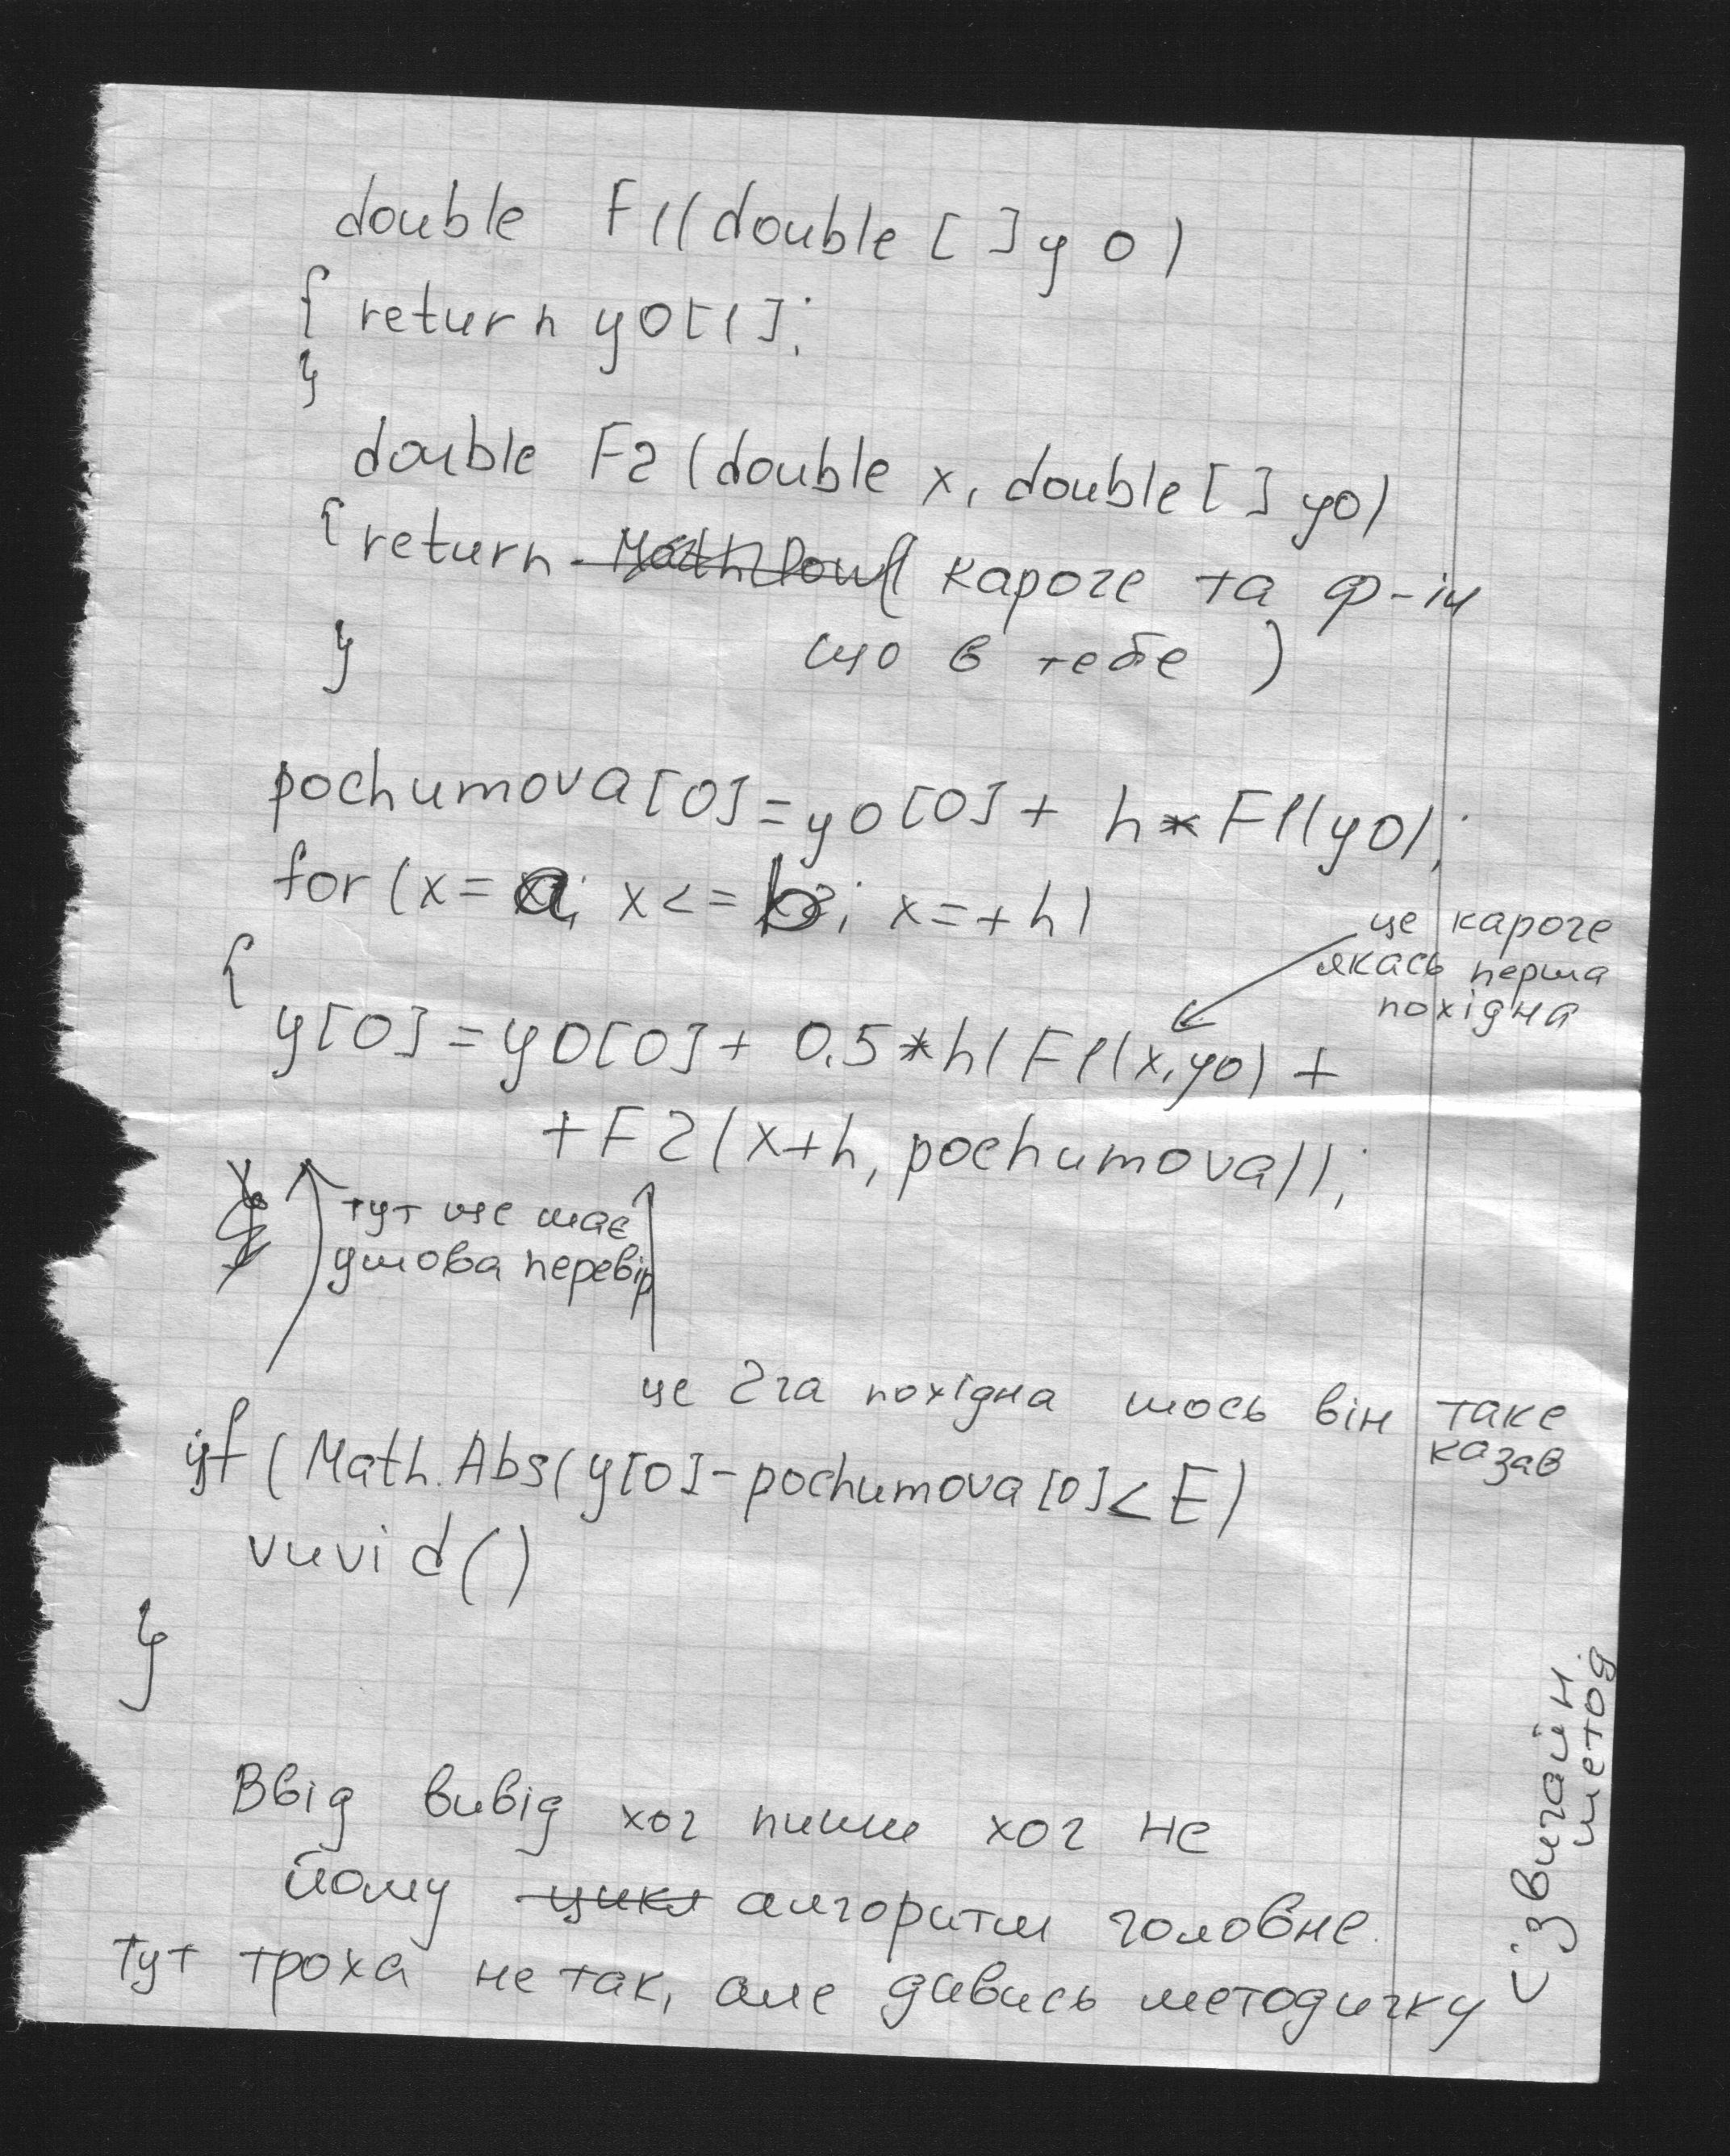 double F1(double [ ] y0)
{ return y0[1];
}
double F2 (double x, double [ ] y0)
{ return Math Pow( кароче та ф-ія
що в тебе )
}
pochumova[0]=y0[0]+ h*F1(y0);
for (x=a; x<=b; x=+h)
це кароче
якась перша
похідна
{
y[0]=y0[0]+ 0.5*h(F1(x,y0)+
+F2(x+h, pochumova));
тут ще має
умова перевір
це 2га похідна шось він таке
казав
if (Math.Abs(y[0]-pochumova[0]<E)
vuvid()
}
Ввід вивід хоч пиши хоч не
йому цикл алгоритм головне.
Тут троха не так, але дивись методичку
звичайн.
метод